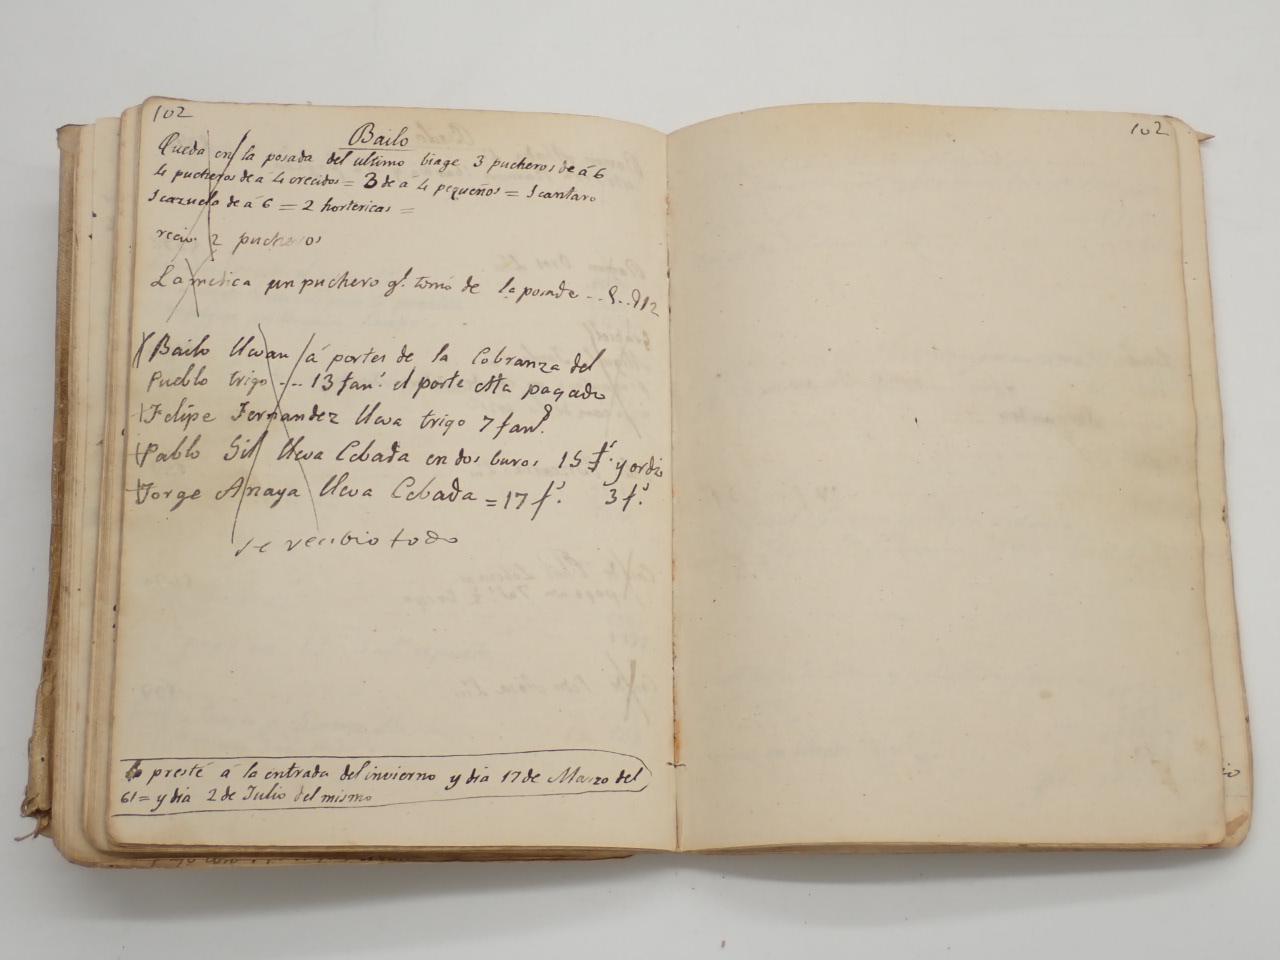 102
Bailo
Queda en la posada del ultimo biage 3 pucheros de á 6
4 pucheros de á 4 crecidos = 3 de á 4 pequeños = 1 cantaro
1 cazuela de á 6 = 2 hortericas =
2 pucheros
La medica un puchero qe. tomó de la posada
Bailo llevan á portes de la Cobranza del
Pueblo trigo --- 13 fans. el porte esta pagado
Felipe Fernandez lleva trigo 7 fans.
Pablo Gil lleva Cebada en dos buros 15 fs. y ordio
Jorge Anaya lleva Cebada = 17 fs. 3 fs.
se recibio todo
presté á la entrada del invierno y dia 17 de Marzo del
61 = y dia 2 de Julio del mismo
102